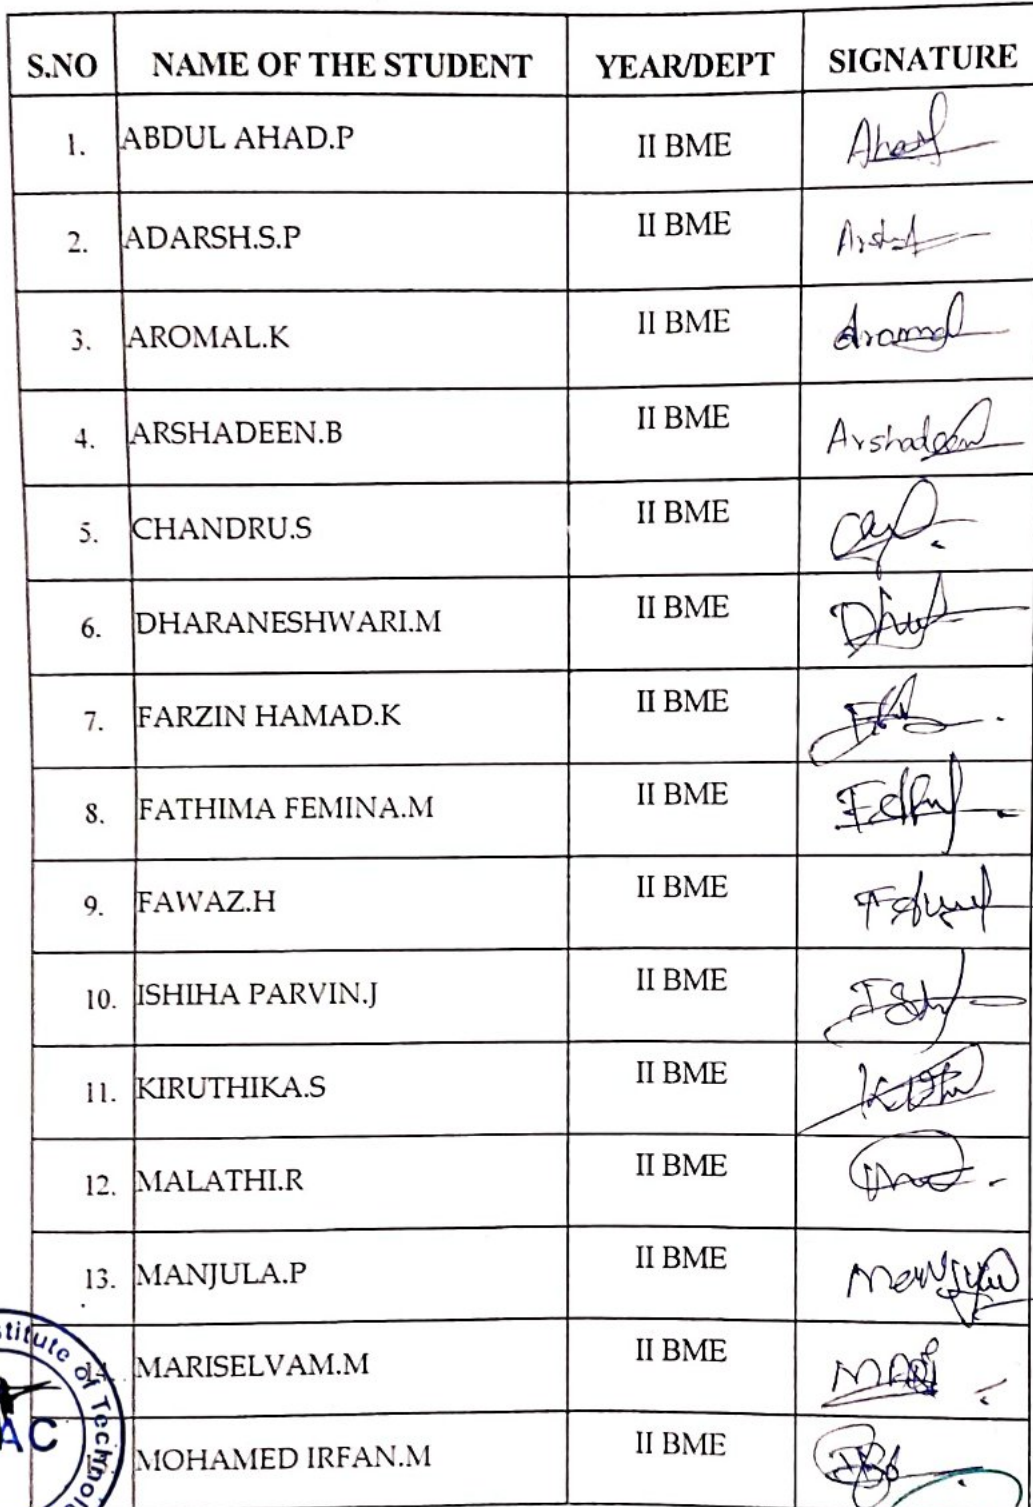 S.NO NAME OF THE STUDENT YEAR/DEPT SIGNATURE
1. ABDUL AHAD.P II BME Ahad
2. ADARSH.S.P II BME
3. AROMAL.K II BME Aromal
4. ARSHADEEN.B II BME Arshadeen
5. CHANDRU.S II BME
6. DHARANESHWARI.M II BME
7. FARZIN HAMAD.K II BME
8. FATHIMA FEMINA.M II BME
9. FAWAZ.H II BME
10. ISHIHA PARVIN.J II BME
11. KIRUTHIKA.S II BME
12. MALATHI.R II BME
13. MANJULA.P II BME
MARISELVAM.M II BME
MOHAMED IRFAN.M II BME
stitute of Technolo
AC